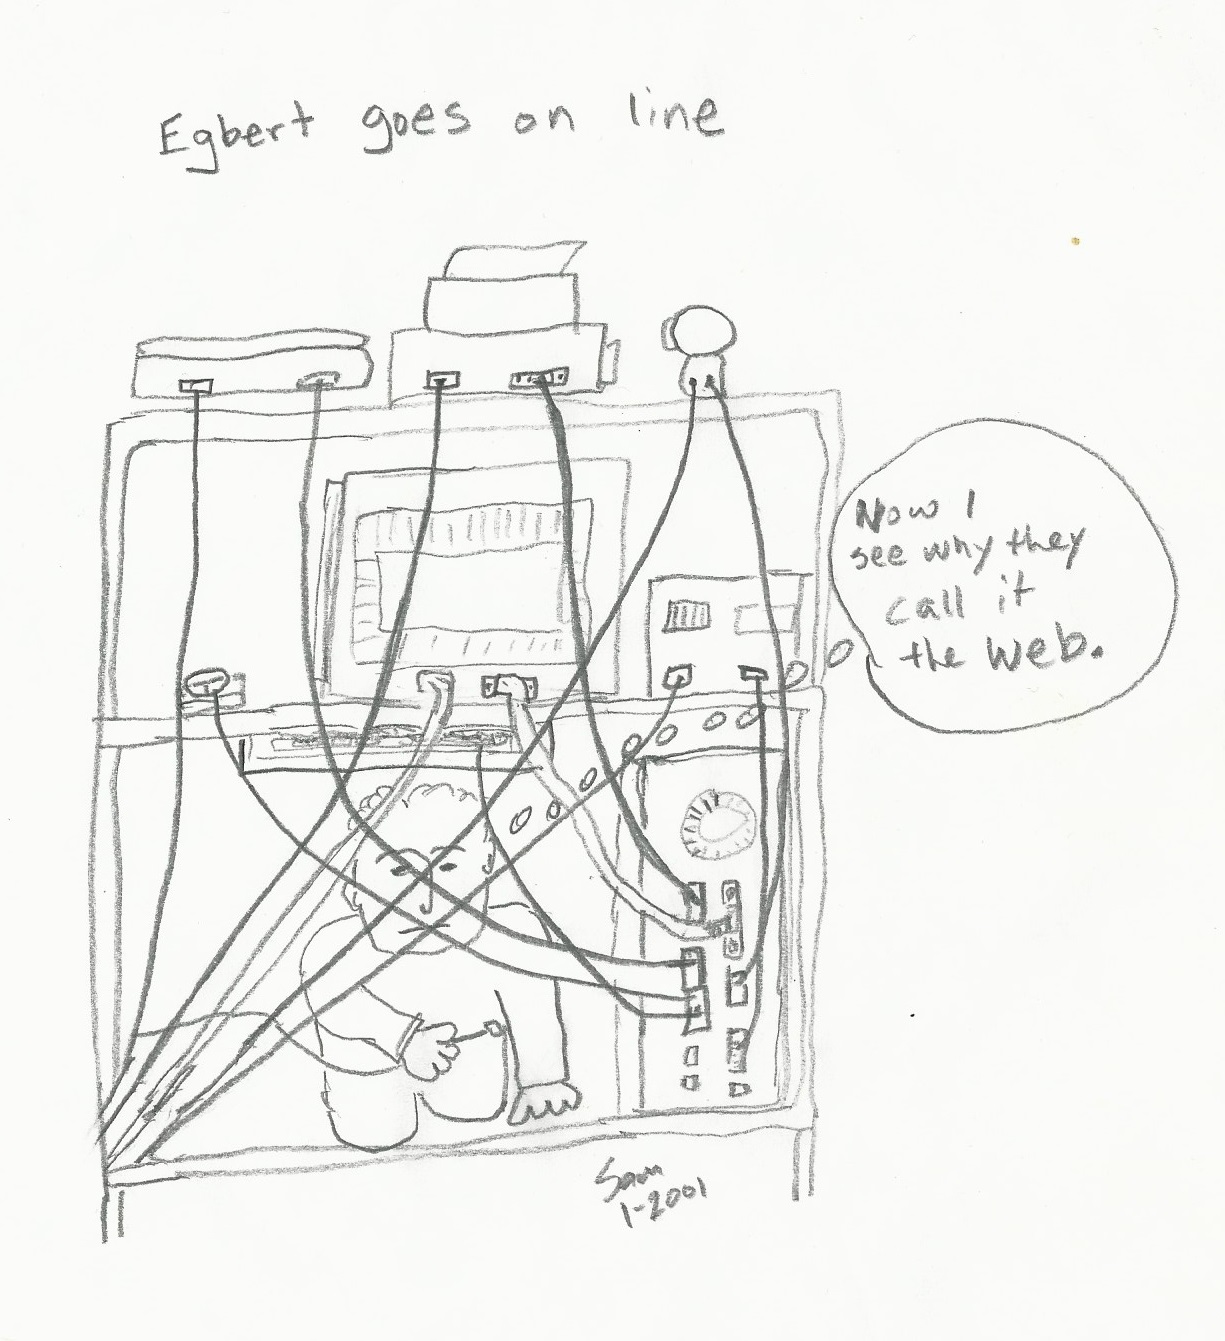 Egbert goes on line
Now I
see why they
call it
the Web.
Sam
1-2001